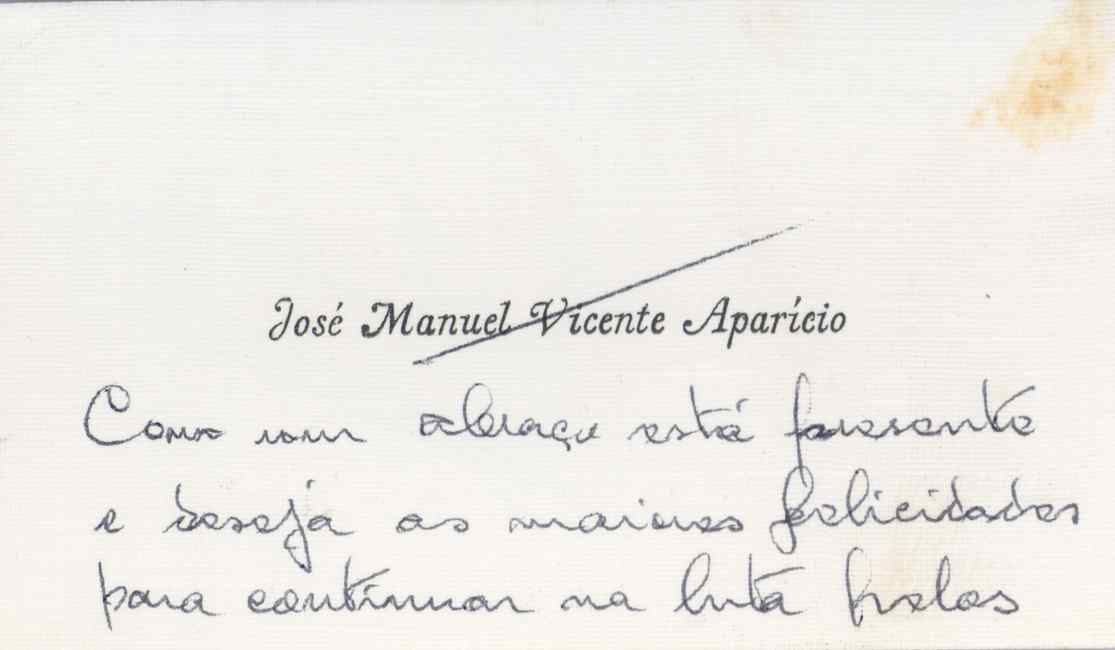 José Manuel Vicente Aparício
Com um abraço está presente
e deseja as maiores felicidades
para continuar na luta pelos